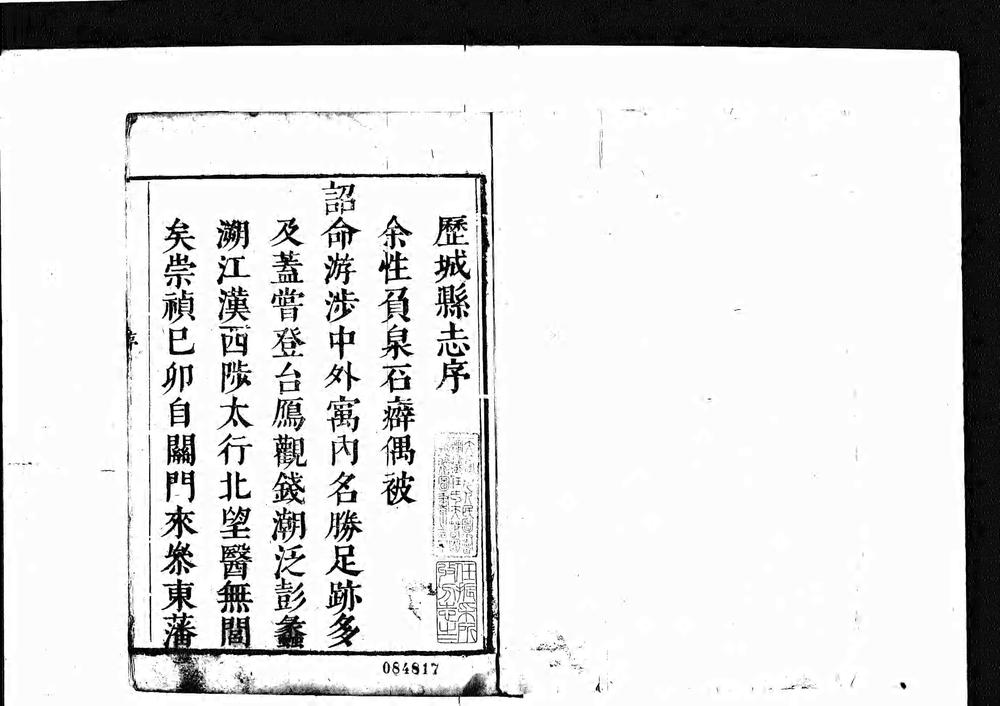 歷城縣志序
余性負泉石癖偶被
詔命游涉中外寓內名勝足跡多
及蓋嘗登台鴈觀錢潮泛彭蠡
溯江漢西陟太行北望醫無閭
矣崇禎巳卯自關門來叅東藩
序
任振采所
收方志之
084817